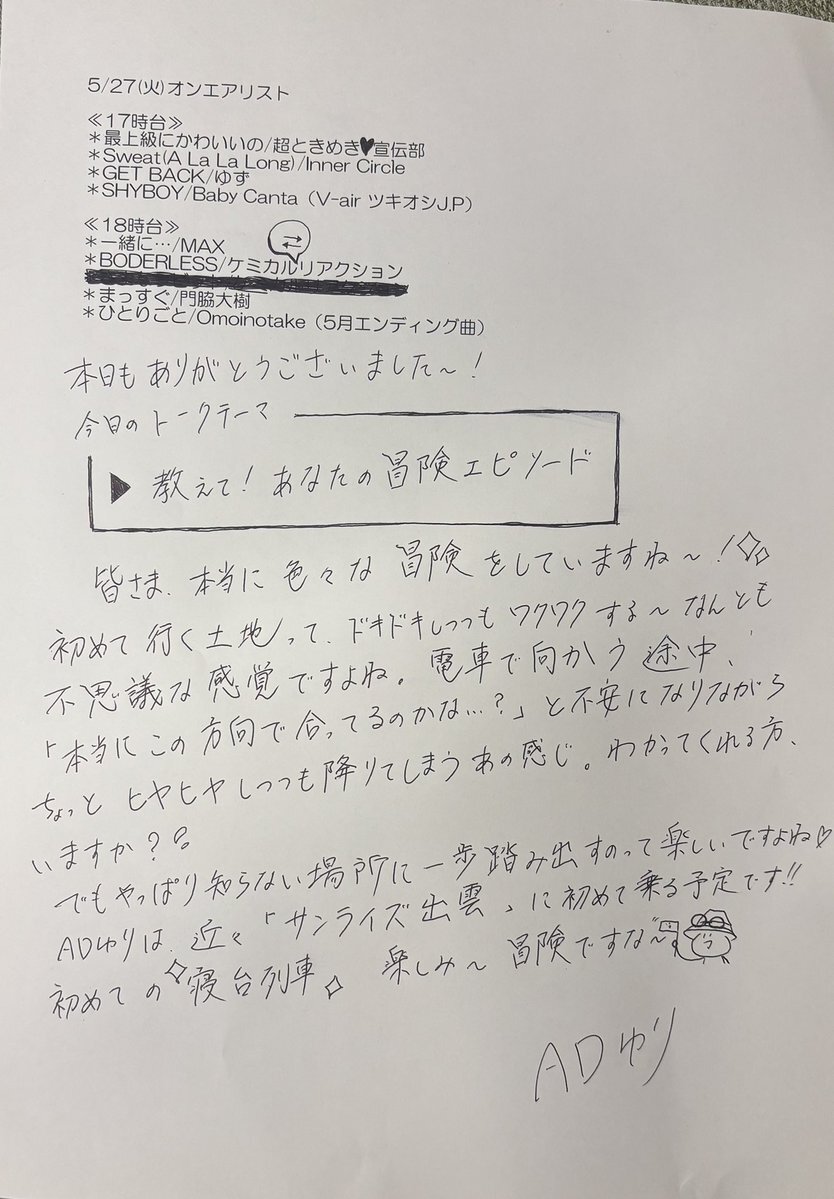 5/27(火)オンエアリスト
≪17時台≫
*最上級にかわいいの/超ときめき♥宣伝部
*Sweat(A La La Long)/Inner Circle
*GET BACK/ゆず
*SHYBOY/Baby Canta（V-air ツキオシJ.P）
≪18時台≫
*一緒に…/MAX
*BODERLESS/ケミカルリアクション
*まっすぐ/門脇大樹
*ひとりごと/Omoinotake（5月エンディング曲）
本日もありがとうございました～！
今日のトークテーマ
▶ 教えて！あなたの冒険エピソード
皆さま、本当に色々な冒険をしていますね～！
初めて行く土地って、ドキドキしつつもワクワクする～なんとも
不思議な感覚ですよね。電車で向かう途中、
「本当にこの方向で合ってるのかな…？」と不安になりながら
ちょっとヒヤヒヤしつつも降りてしまうあの感じ。わかってくれる方、
いますか？？
でもやっぱり知らない場所に一歩踏み出すのって楽しいですよね♡
ADゆりは、近々「サンライズ出雲」に初めて乗る予定です!!
初めての寝台列車。楽しみ～冒険ですな～
ADゆり